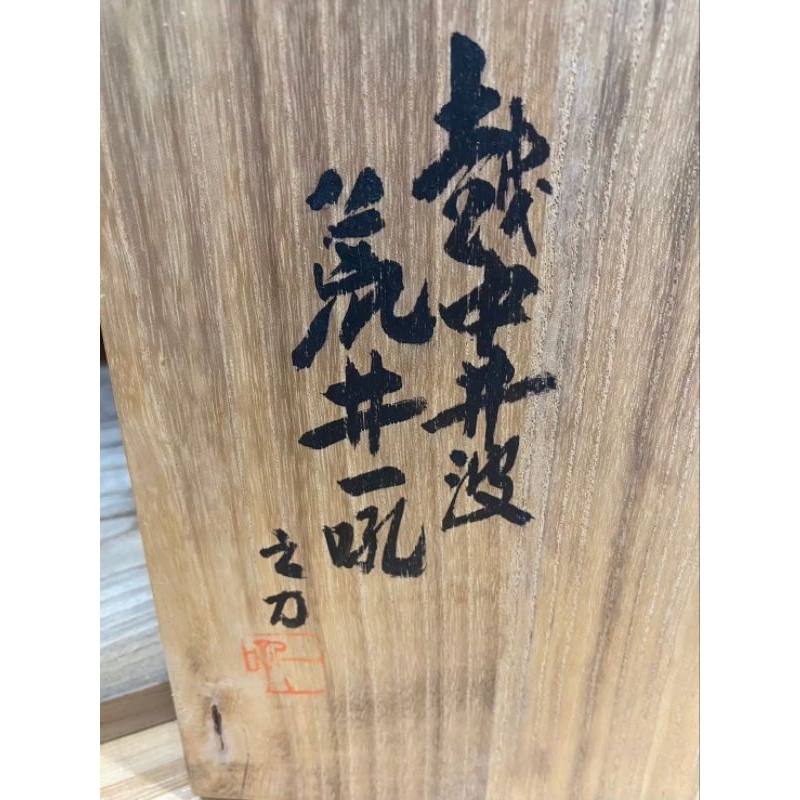 越中井波
荒井一吼
之刀